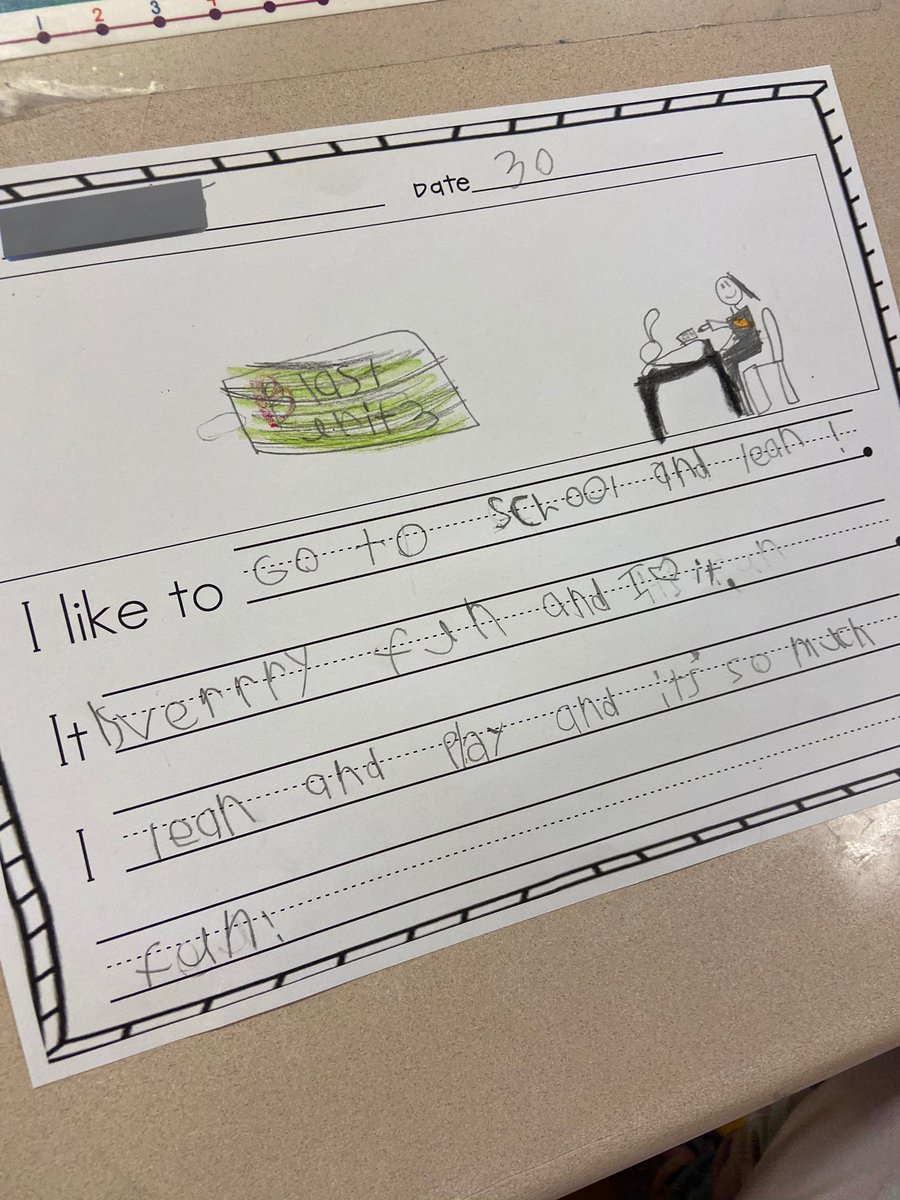 1 2 3 4
Date 30
Blast
Unit 3
I like to Go to school and lean !
It is verrry fun and I ♡ it.
I lean and play and it's so much
fun!